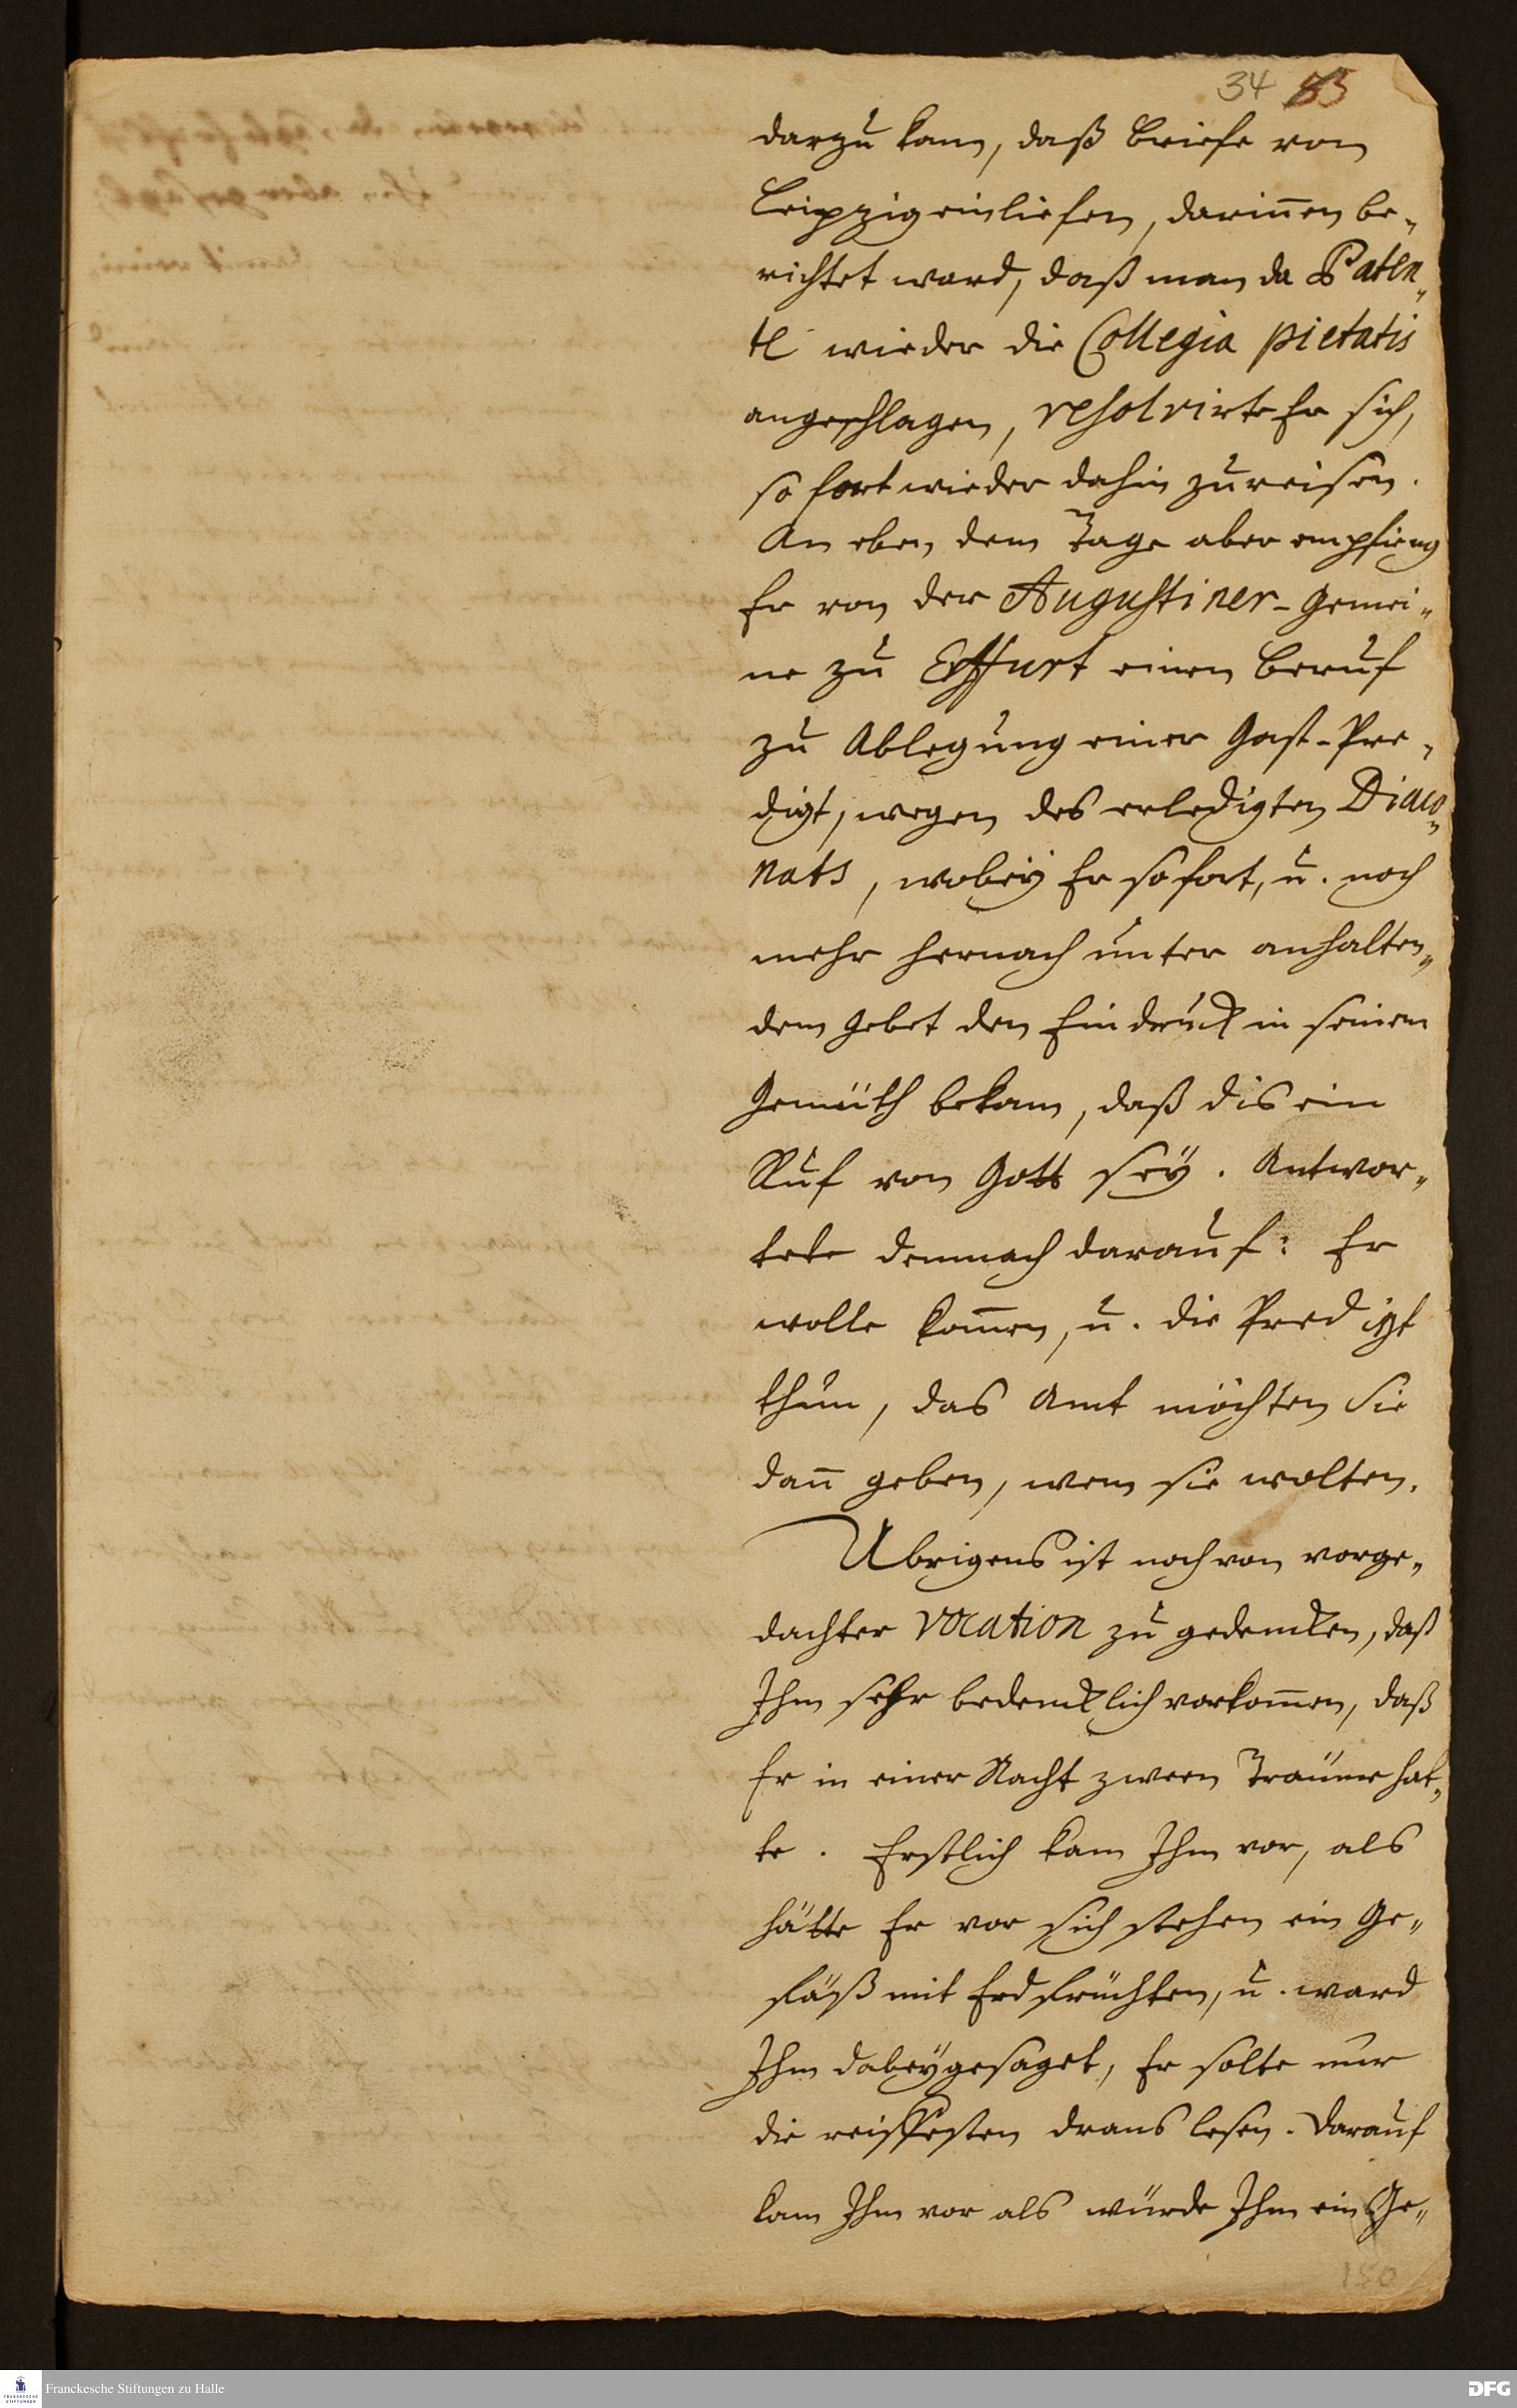 34 83
darzu kam, daß Briefe von
Leipzig einliefen, darin̅en be„
richtet ward, daß man da Paten„
te wieder die Collegia pietatis
angeschlagen, resolvirte Er sich,
so fort wieder dahin zureisen.
An eben dem Tage aber empfieng
Er von der Augustiner-Gemei„
ne zu Erffurt einen Beruf
zu Ablegung einer Gast-Pre„
digt, wegen des erledigten Diaco„
nats, wobey Er so fort, u. noch
mehr hernach unter anhalten„
dem Gebet den Eindruck in seinem
Gemüth bekam, daß dis ein
Ruf von Gott sey. Antwor„
tete demnach darauf: Er
wolle kom̅en, u. die Predigt
thun, das Amt möchten Sie
dan̅ geben, wem sie wolten.
Ubrigens ist noch von vorge„
dachter Vocation zu gedencken, daß
Ihm sehr bedencklich vorkom̅en, daß
Er in einer Nacht zween Träume hat„
te. Erstlich kam Ihm vor, als
hätte Er vor sich stehen ein Ge„
fäß mit Erdfrüchten, u. ward
Ihm dabey gesaget, Er solte nur
die reiffesten draus lesen. Darauf
kam Ihm vor als würde Ihm ein Ge„
150
Franckesche Stiftungen zu Halle
DFG